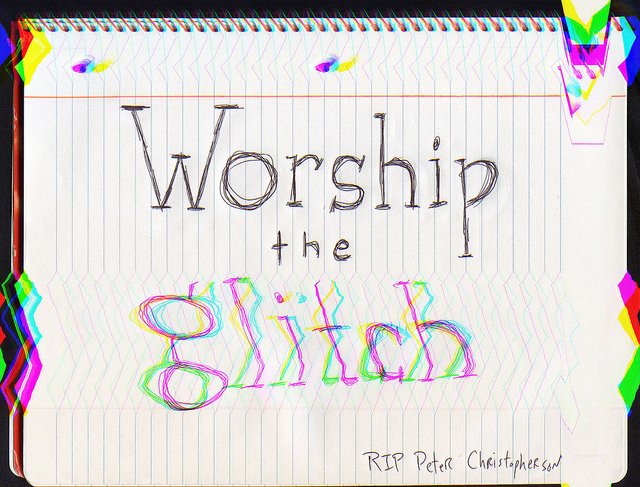 Worship
the
glitch
RIP Peter Christopherson